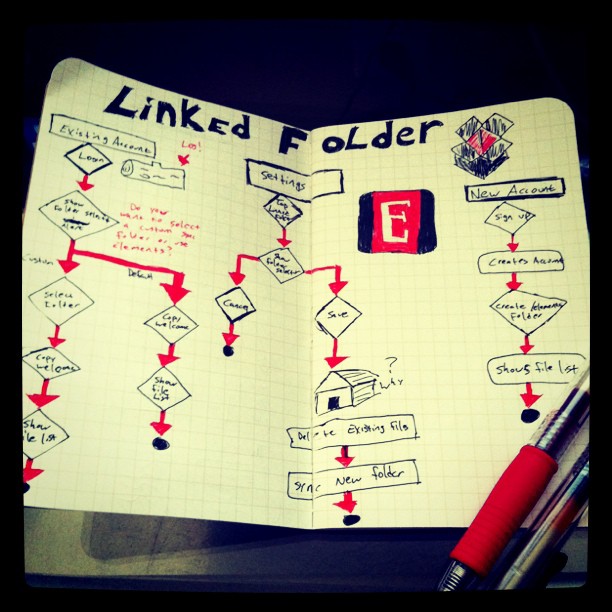 Linked Folder
Existing Account
Login
Log!
Show
Folder select
Alert
Do you
want to select
a custom
folder or use
elements?
Custom
Default
Select
Folder
Copy
welcome
Show
file list
Copy
welcome
Show
file
List
Settings
Show
folder
selector
Cancel
Save
?
Why
Delete Existing Files
Sync New folder
E
New Account
Sign up
Creates Account
Create /elements
Folder
Shows file list